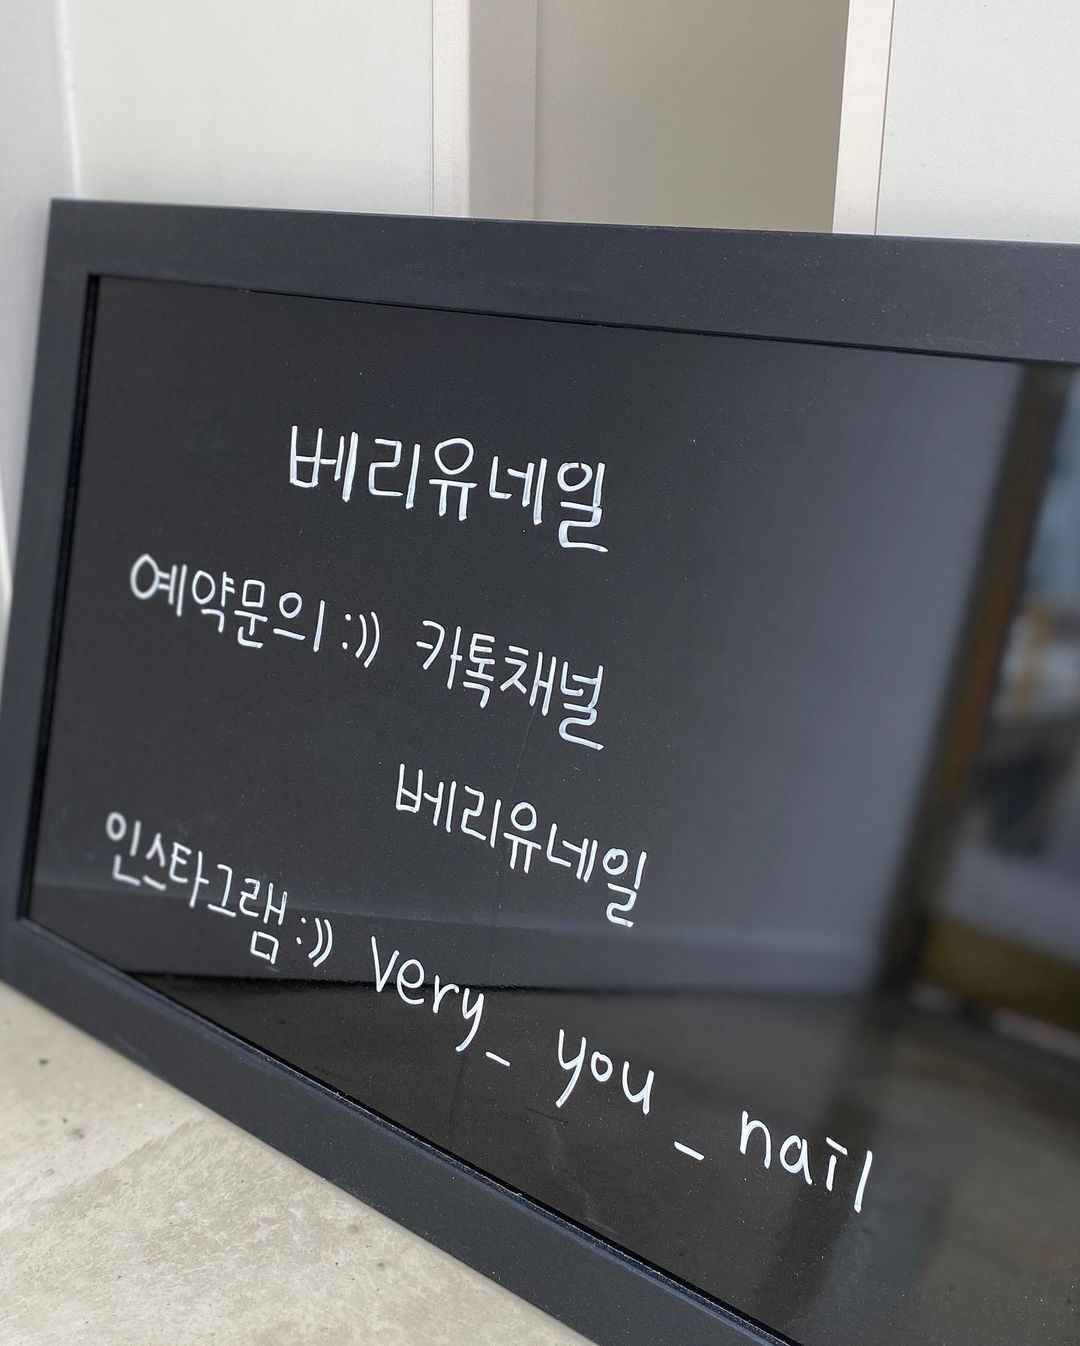 베리유네일
예약문의:)) 카톡채널
베리유네일
인스타그램:)) very_you_nail